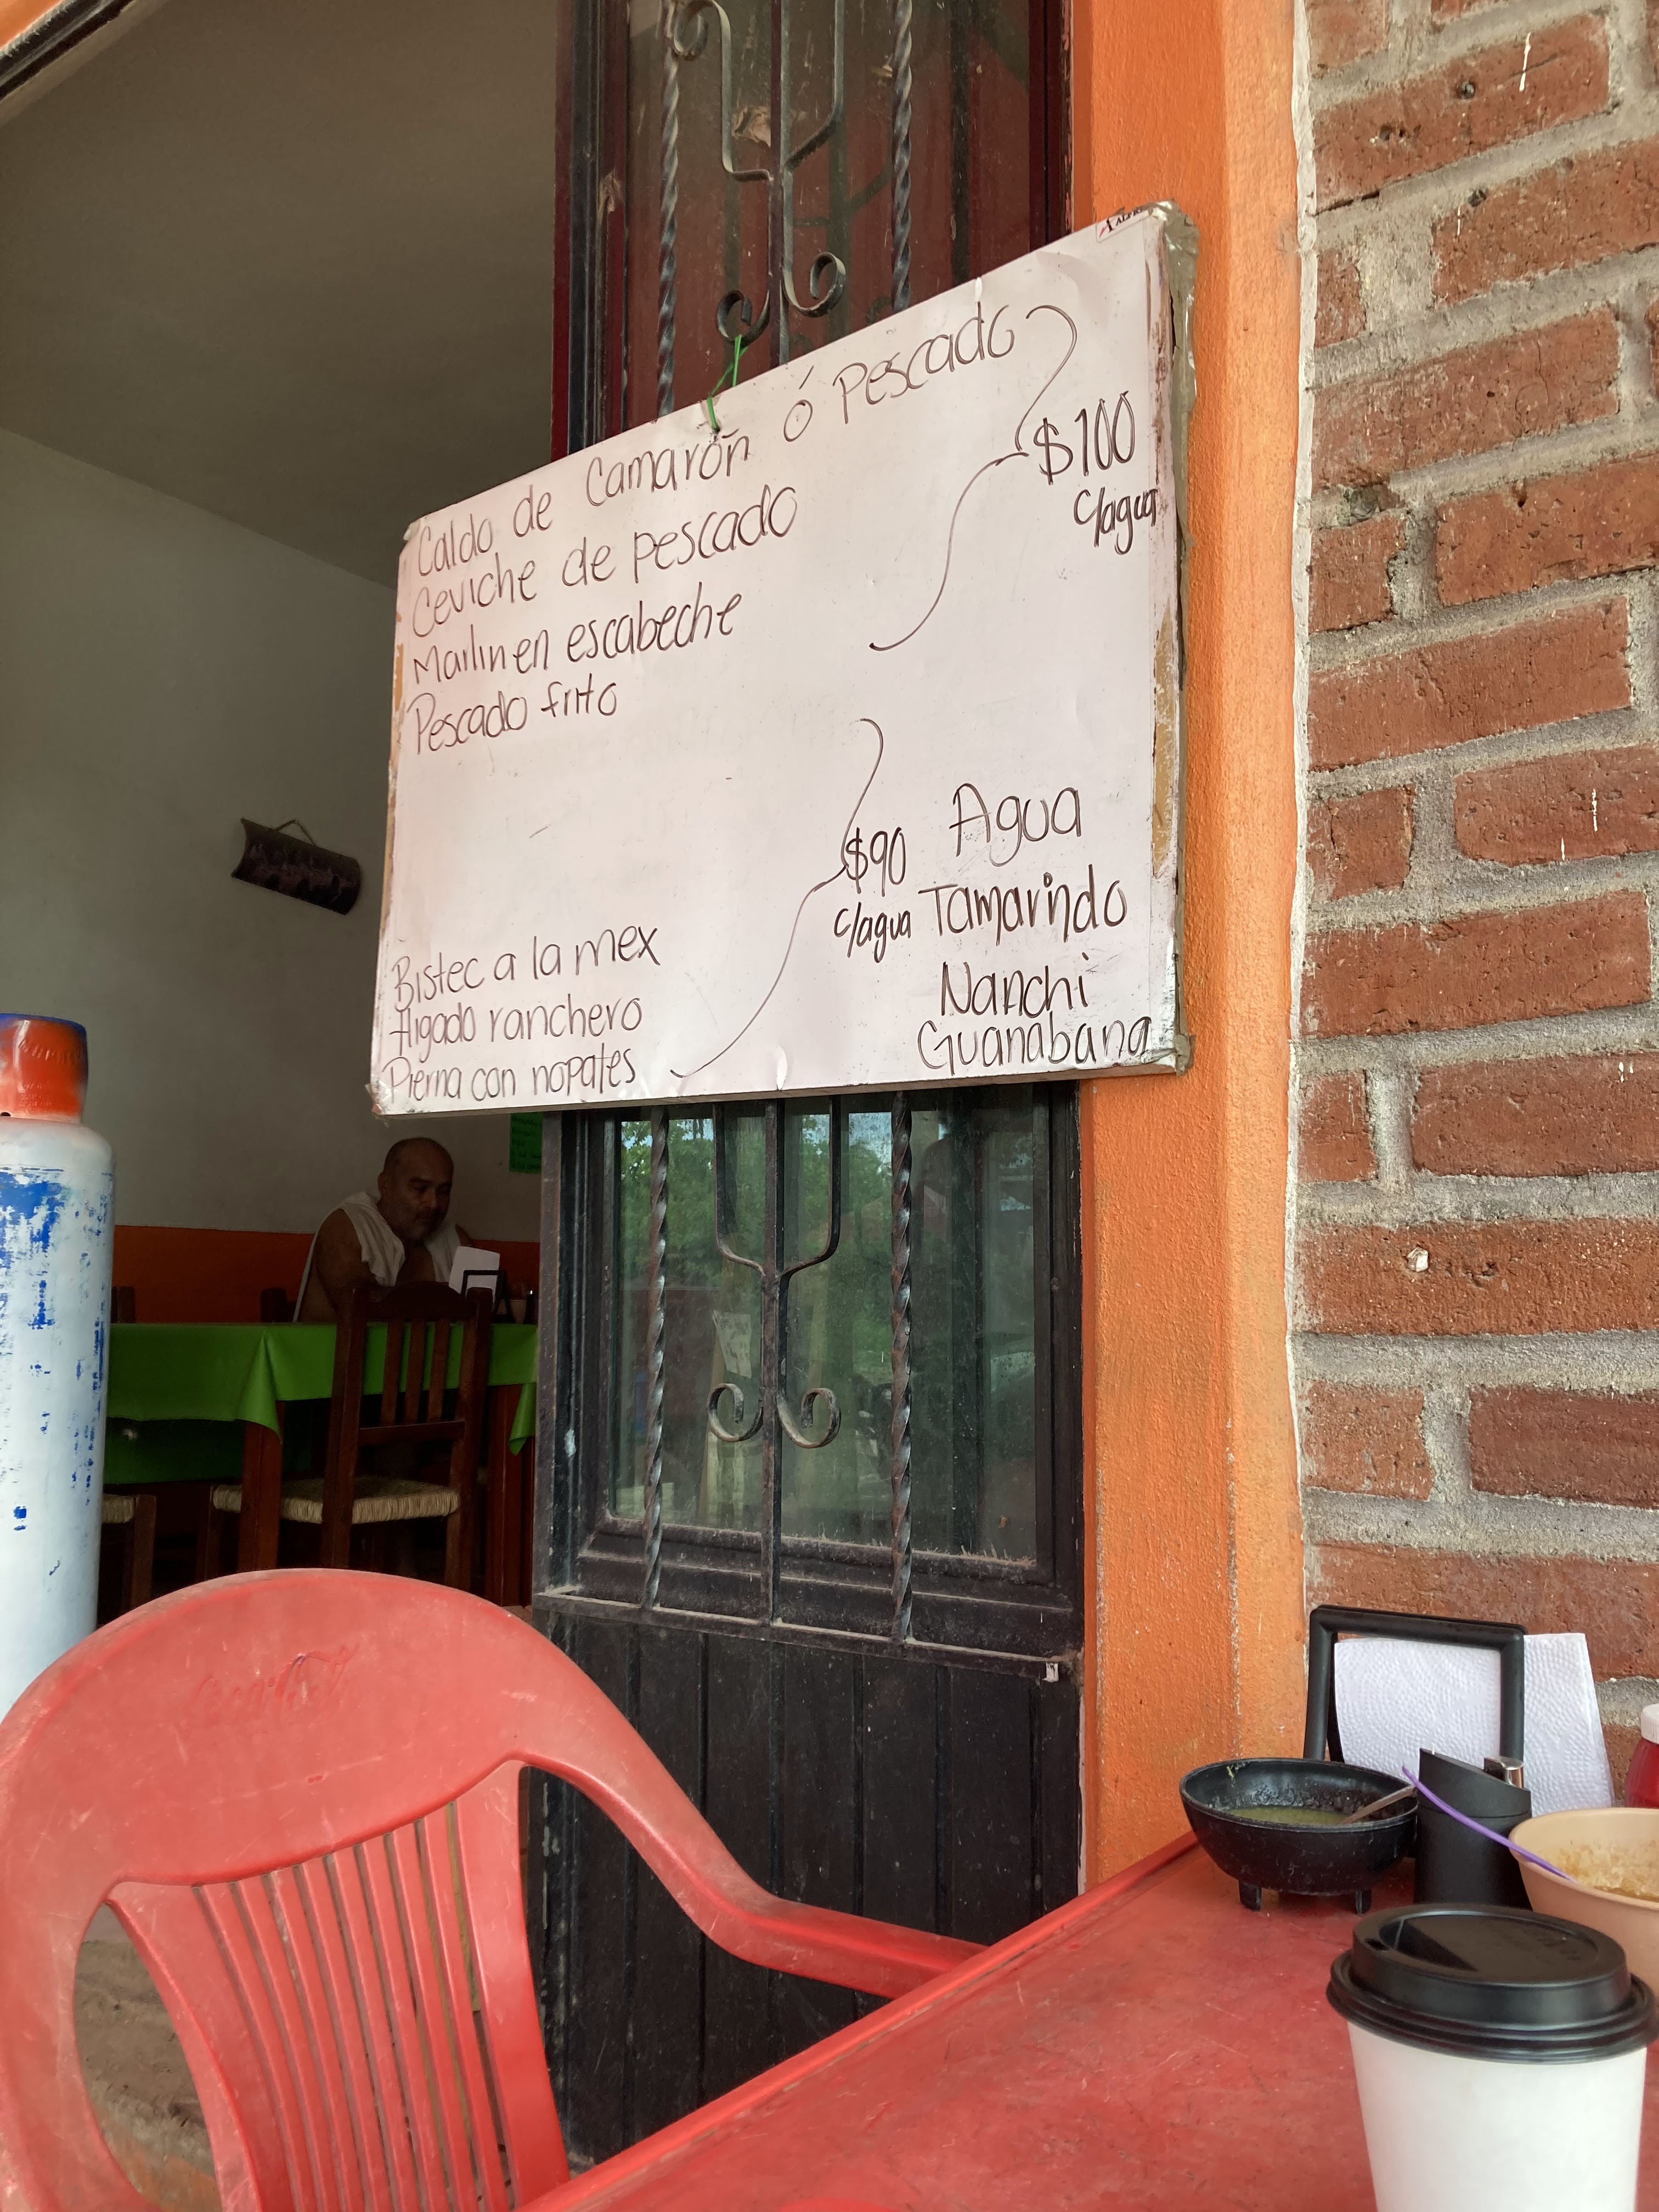 Caldo de Camarón ó Pescado
Ceviche de pescado
Marlin en escabeche
Pescado frito
$100
c/agua
Bistec a la mex
Higado ranchero
Pierna con nopales
$90
c/agua
Agua
Tamarindo
Nanchi
Guanabana
Coca-Cola